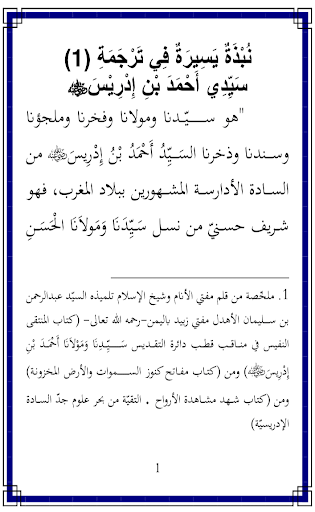 نُبْذَةٌ يَسِيرَةٌ فِي تَرْجَمَةِ (1)
سَيِّدِي أَحْمَدَ بْنِ إِدْرِيْسَ
"هو سـيّـدنا ومولانا وفخرنا وملجؤنا
وسندنا وذخرنا السَيِّدُ أَحْمَدُ بْنُ إِدْرِيسَ من
السادة الأدارسة المشهورين ببلاد المغرب، فهو
شريف حسنيّ من نسل سَيِّدَنَا وَمَوْلَانَا الْحَسَنِ
1. ملخّصة من قلم مفتي الأنام وشيخ الإسلام تلميذه السيّد عبدالرحمن
بن سليمان الأهدل مفتي زبيد باليمن-رحمه الله تعالى- (كتاب المنتقى
النفيس في مناقب قطب دائرة التقديس سَـيِّـدِنَا وَمَوْلَانَا أَحْمَدَ بْنِ
إِدْرِيسَ) ومن (كتاب مفاتح كنوز السموات والأرض المخزونة)
ومن (كتاب شهد مشاهدة الأرواح . التقيّة من بحر علوم جدّ السادة
الإدريسيّة)
1